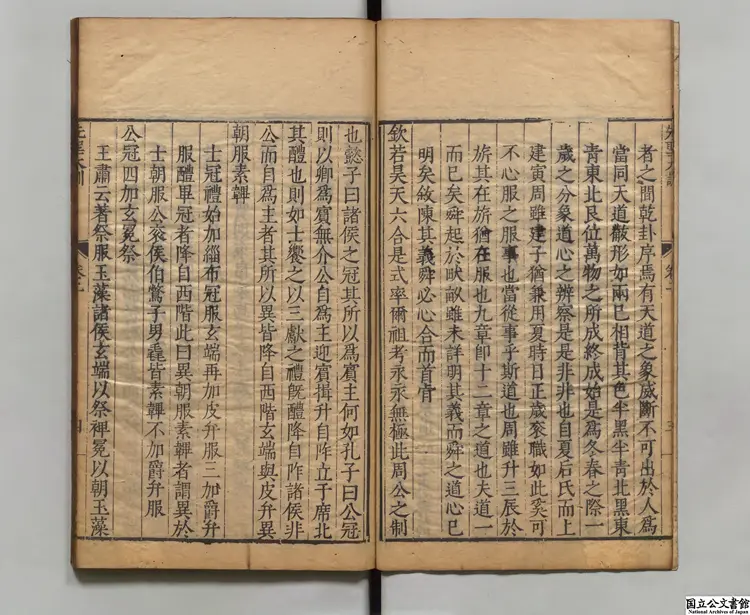 者之間乾卦序焉有天道之象焉斷不可出於人爲
當同天道黻形如兩巳相背其色半黑半青北黑東
青東北艮位萬物之所成終成始是爲冬春之際一
歲之分象道心之辨察是是非非也自夏后氏而上
建寅周雖建子猶兼用夏時日正歲冢職如此奚可
不心服之服事也當從事乎斯道也周雖升三辰於
旂其在旂猶在服也九章卽十二章之道也夫道一
而巳矣舜起於畎畝雖未詳明其義而舜之道心巳
明矣敘陳其義舜必心合而首肯
欽若昊天六合是式率爾祖考永永無極此周公之制
也懿子曰諸侯之冠其所以爲賓主何如孔子曰公冠
則以卿爲賓無介公自爲主迎賓揖升自阼立于席北
其醴也則如士饗之以三獻之禮旣醴降自阼諸侯非
公而自爲主者其所以異皆降自西階玄端與皮弁異
朝服素韠
士冠禮始加緇布冠服玄端再加皮弁服三加爵弁
服醴畢冠者降自西階此曰異朝服素韠者謂異於
士朝服公袞侯伯鷩子男毳皆素韠不加爵弁服
公冠四加玄冕祭
王肅云著祭服玉藻諸侯玄端以祭裨冕以朝玉藻
卷一
三
四
国立公文書館
National Archives of Japan